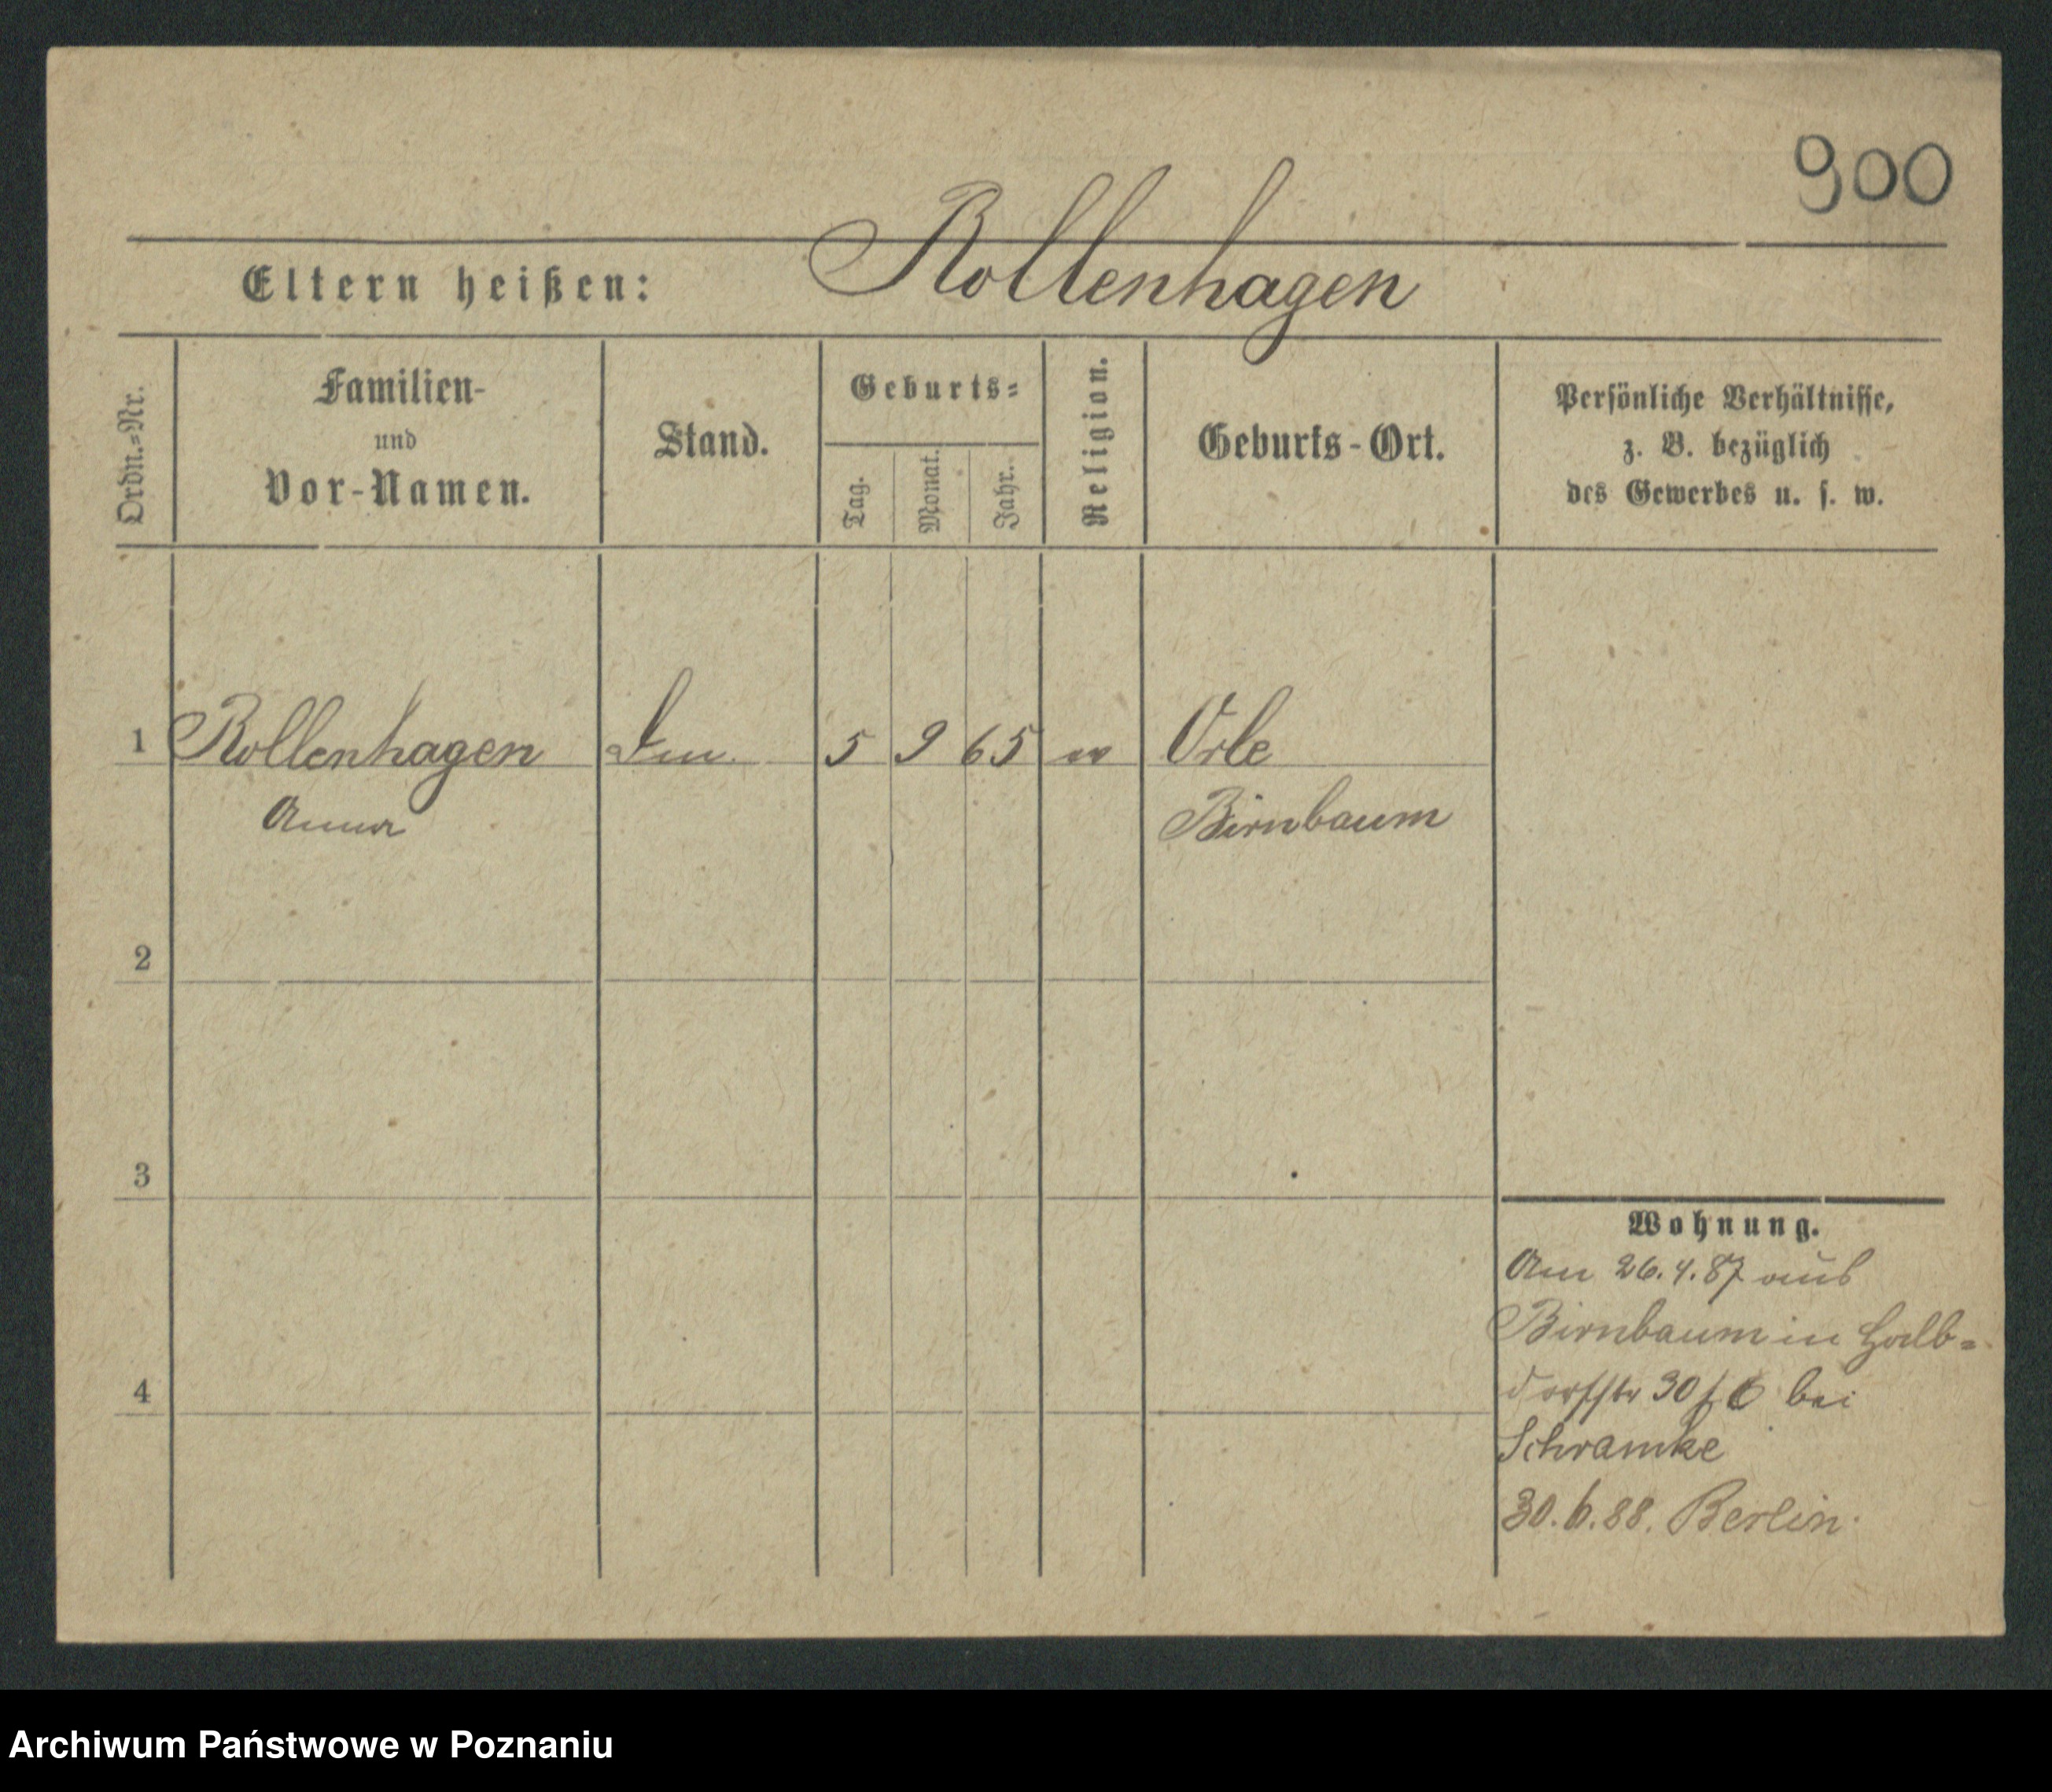 900
Eltern heißen: Rollenhagen
Ordn.=Nr.
Familien-
und
Vor-Namen.
Stand.
Geburts=
Tag.
Monat.
Jahr.
Religion.
Geburts-Ort.
Persönliche Verhältnisse,
z. B. bezüglich
des Gewerbes u. s. w.
1 Rollenhagen 5 9 65 Orle
Anna Birnbaum
2
3
4
Wohnung.
Am 26.4.87 aus
Birnbaum in Halb=
dorfstr 30 bei
Schramke
30.6.88. Berlin.
Archiwum Państwowe w Poznaniu